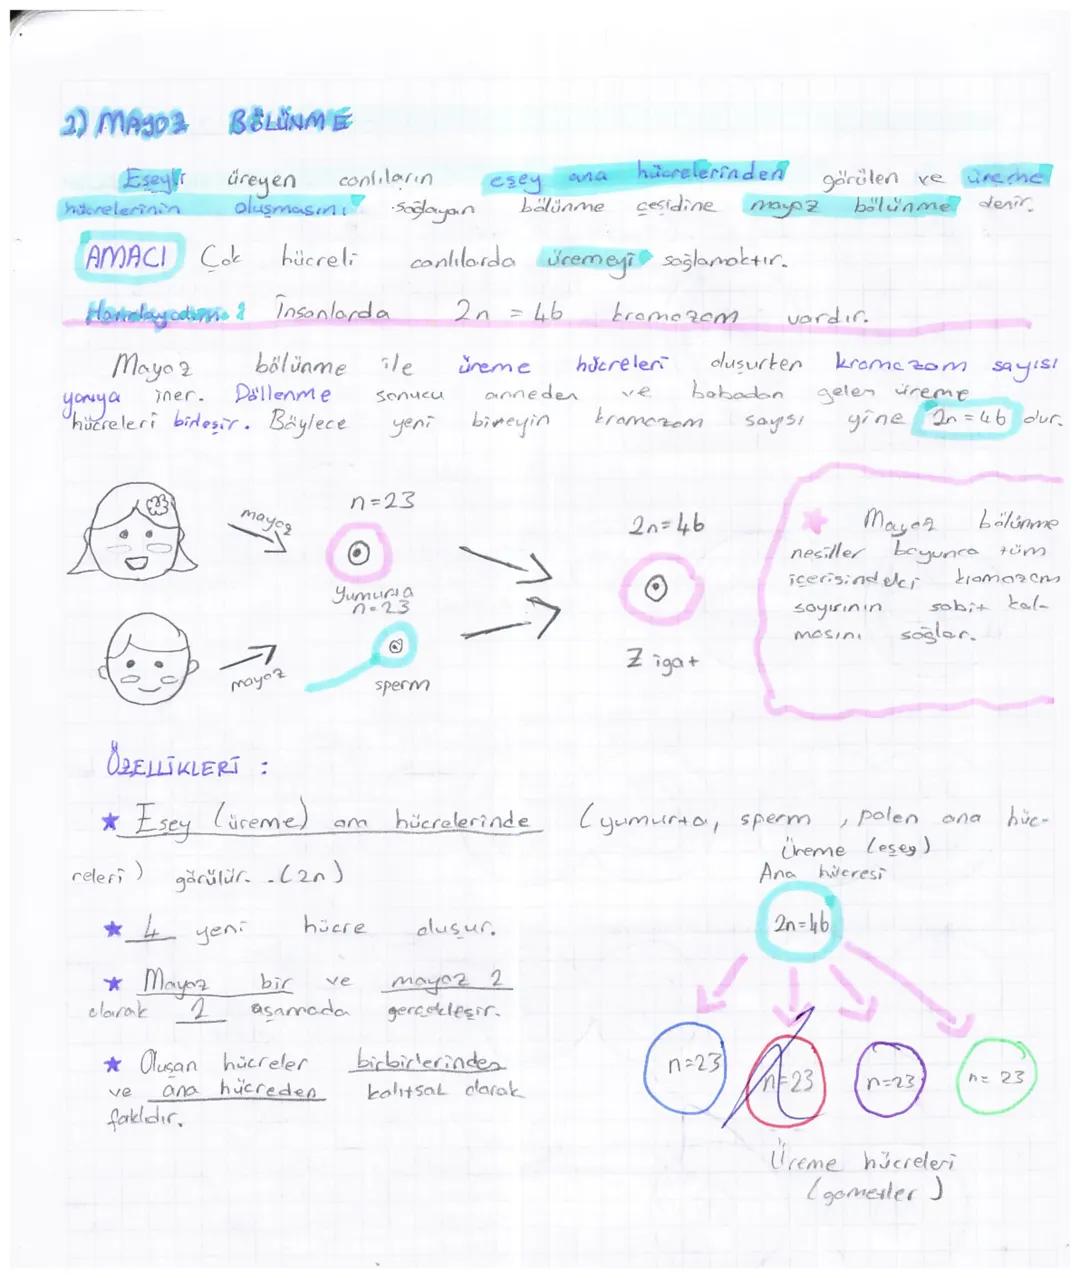 2) MAYOZ BÖLÜNME
Eşeyli üreyen canlıların eşey ana hücrelerinden görülen ve üreme
hücrelerinin oluşmasını sağlayan bölünme çeşidine mayoz bölünme denir.
AMACI Çok hücreli canlılarda üremeyi sağlamaktır.
Hatırlayalım: İnsanlarda 2n = 46 kromozom vardır.
Mayoz bölünme ile üreme hücreleri oluşurken kromozom sayısı
yarıya iner. Döllenme sonucu anneden ve babadan gelen üreme
hücreleri birleşir. Böylece yeni bireyin kromozom sayısı yine 2n=46 olur.
mayoz
n=23
Yumurta
n=23
mayoz
sperm
2n=46
Zigot
Mayoz bölünme
nesiller boyunca tüm
içerisindeki kromozom
sayısının sabit kal-
masını sağlar.
ÖZELLİKLERİ :
Eşey (üreme) ana hücrelerinde (yumurta, sperm, polen ana hüc-
releri) görülür. (2n)
4 yeni hücre oluşur.
Mayoz bir ve mayoz 2
olarak 2 aşamada gerçekleşir.
Oluşan hücreler birbirlerinden
ve ana hücreden kalıtsal olarak
faklıdır.
Üreme (eşey)
Ana hücresi
2n=46
n=23
n=23
n=23
n= 23
Üreme hücreleri
(gometler)